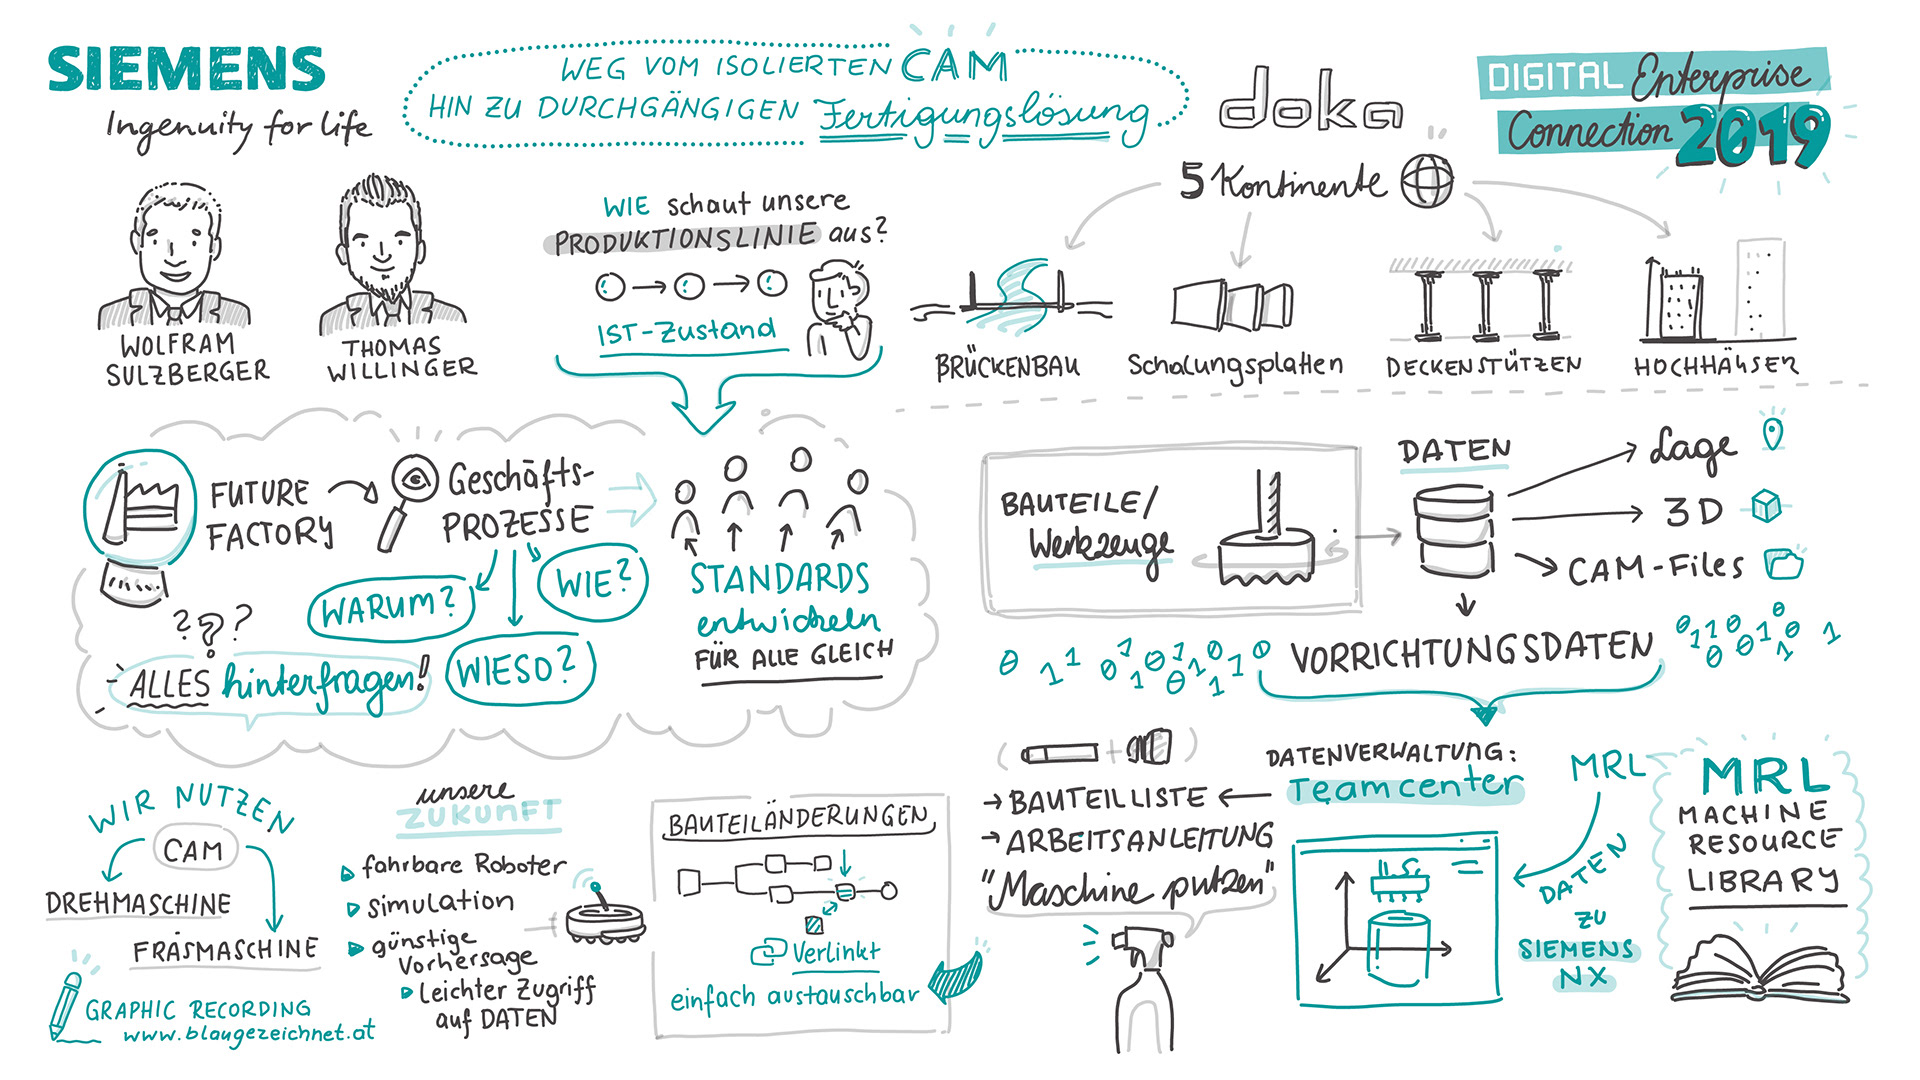 SIEMENS
Ingenuity for life
WEG VOM ISOLIERTEN CAM
HIN ZU DURCHGÄNGIGEN Fertigungslösung
doka
5 Kontinente
DIGITAL Enterprise
Connection 2019
WOLFRAM
SULZBERGER
THOMAS
WILLINGER
WIE schaut unsere
PRODUKTIONSLINIE aus?
IST-Zustand
BRÜCKENBAU
Schalungsplatten
DECKENSTÜTZEN
HOCHHÄUSER
FUTURE
FACTORY
Geschäfts-
PROZESSE
WARUM?
WIE?
WIESO?
???
ALLES hinterfragen!
STANDARDS
entwickeln
FÜR ALLE GLEICH
BAUTEILE/
Werkzeuge
DATEN
Lage
3D
CAM-Files
VORRICHTUNGSDATEN
DATENVERWALTUNG:
Teamcenter
BAUTEILLISTE
ARBEITSANLEITUNG
"Maschine putzen"
MRL
DATEN
ZU
SIEMENS
NX
MRL
MACHINE
RESOURCE
LIBRARY
WIR NUTZEN
CAM
DREHMASCHINE
FRÄSMASCHINE
unsere
ZUKUNFT
fahrbare Roboter
simulation
günstige
Vorhersage
Leichter Zugriff
auf DATEN
BAUTEILÄNDERUNGEN
Verlinkt
einfach austauschbar
GRAPHIC RECORDING
www.blaugezeichnet.at